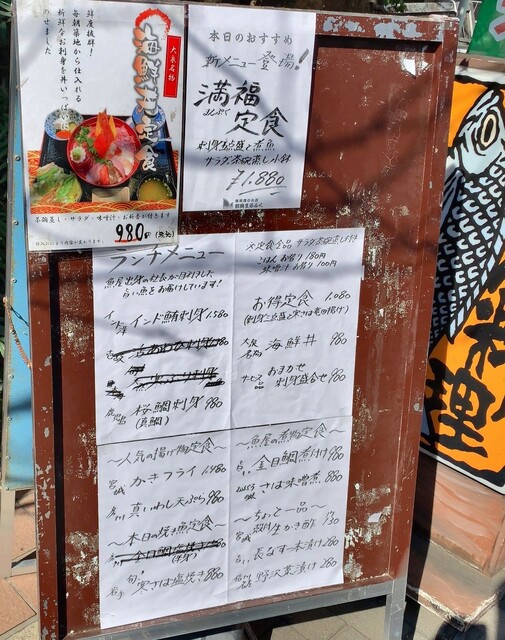 鮮度抜群!
毎朝築地から仕入れる
新鮮なお刺身を丼いっぱい
のせました
大衆名物
海鮮丼定食
茶碗蒸し・サラダ・味噌汁・お新香が付きます
980円(税込)
本日のおすすめ
新メニュー登場!
満福
まんぷく
定食
刺身五点盛と煮魚
サラダ茶碗蒸し小鉢
¥1,880
ランチメニュー
魚屋出身の社長が目利きした
旨い魚をお届けしています!
インド鮪刺身 1,580
桜鯛刺身 980
(真鯛)
〜人気の揚げ物定食〜
宮城 かきフライ 1,480
真いわし天ぷら 980
〜本日の焼き魚定食〜
金目鯛塩焼き 880
旬 寒さば塩焼き 880
×定食全品 サラダ茶碗蒸し付
ごはんお替り 180円
味噌汁お替り 100円
お得定食 1,080
(刺身三点盛と実さば竜田揚げ)
大衆名物 海鮮丼 980
サービス品 おまかせ刺身盛合せ 980
〜魚屋の煮物定食〜
金目鯛煮付け 980
さば味噌煮 880
〜ちょっと一品〜
宮城 生かき酢 730
長なす一本漬け 280
信州 野沢菜漬け 280
料理